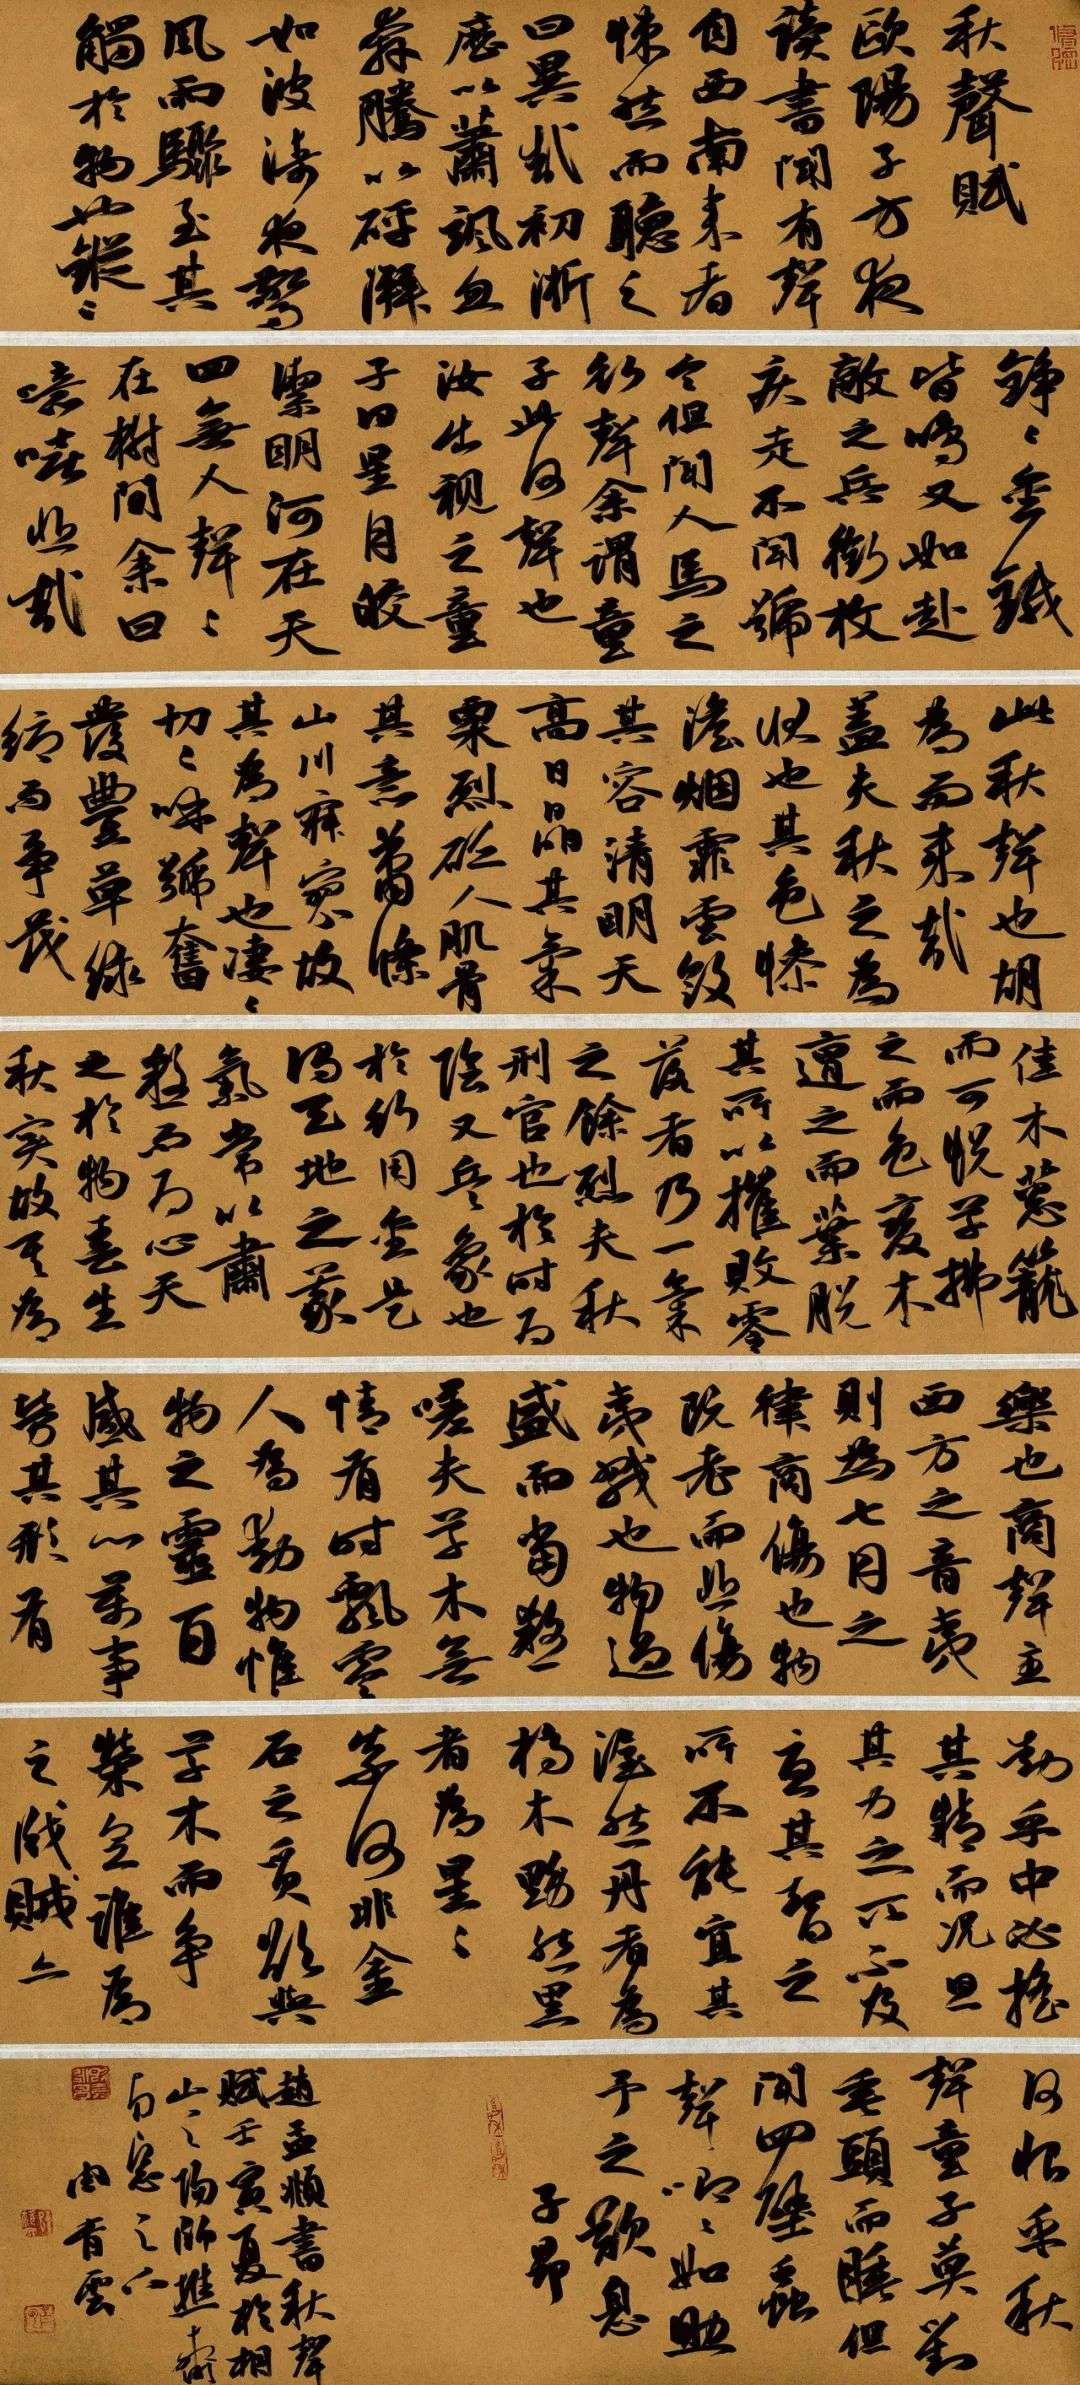 秋聲賦
歐陽子方夜
讀書聞有聲
自西南來者
悚然而聽之
曰異哉初淅
瀝以蕭颯忽
奔騰以砰湃
如波濤夜驚
風雨驟至其
觸於物也鏦〻
錚〻金鐵
皆鳴又如赴
敵之兵銜枚
疾走不聞號
令但聞人馬之
行聲余謂童
子此何聲也
汝出視之童
子曰星月皎
潔明河在天
四無人聲〻
在樹間余曰
噫嘻悲哉
此秋聲也胡
為而來哉
蓋夫秋之為
狀也其色慘
澹烟霏雲斂
其容清明天
高日晶其氣
栗烈砭人肌骨
其意蕭條
山川寂寥故
其為聲也淒〻
切〻呼號奮
發豐草綠
縟而爭茂
佳木蔥蘢
而可悅草拂
之而色變木
遭之而葉脫
其所以摧敗零
落者乃一氣
之餘烈夫秋
刑官也於時為
陰又兵象也
於行用金是
謂天地之義
氣常以肅
殺而為心天
之於物春生
秋實故其為
樂也商聲主
西方之音夷
則為七月之
律商傷也物
既老而悲傷
夷戮也物過
盛而當殺
嗟夫草木無
情有時飄零
人為動物惟
物之靈百
感其心萬事
勞其形有
動乎中必搖
其精而況思
其力之所不及
憂其智之
所不能宜其
渥然丹者為
槁木黟然黑
者為星〻
奈何非金
石之質欲與
草木而爭
榮念誰為
之戕賊亦
何恨乎秋
聲童子莫對
垂頭而睡但
聞四壁蟲
聲唧〻如助
予之歎息
子昂
趙孟頫書秋聲
賦壬寅夏於相
山之陽師樵齋
南窗之下
青雲